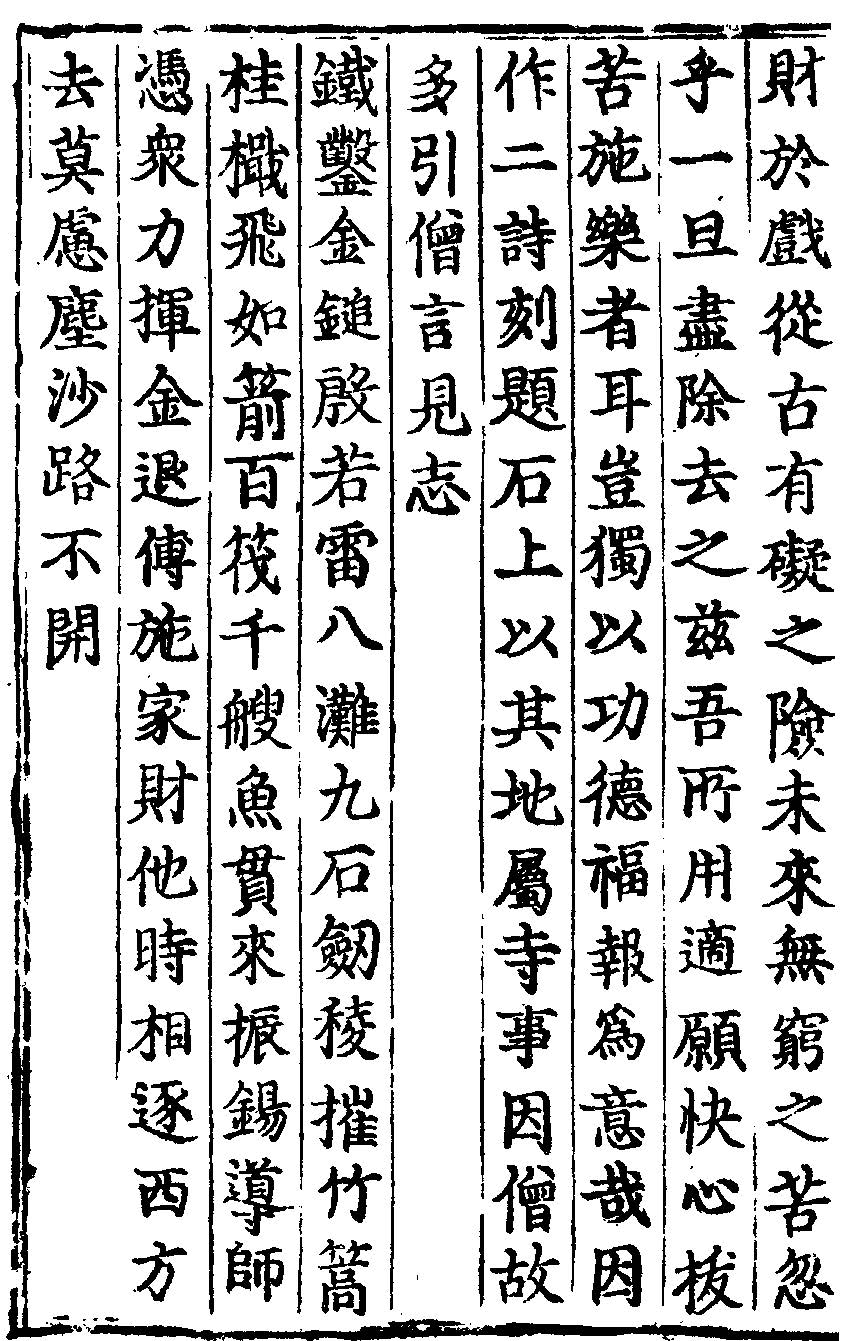 財於戲從古有礙之險未來無窮之苦忽
乎一旦盡除去之兹吾所用適願快心拔
苦施樂者耳豈獨以功德福報爲意哉因
作二詩刻題石上以其地屬寺事因僧故
多引僧言見志
鐵鑿金鎚殷若雷八灘九石劒稜摧竹篙
桂檝飛如箭百筏千艘魚貫來振錫導師
憑衆力揮金退傅施家財他時相逐西方
去莫慮塵沙路不開